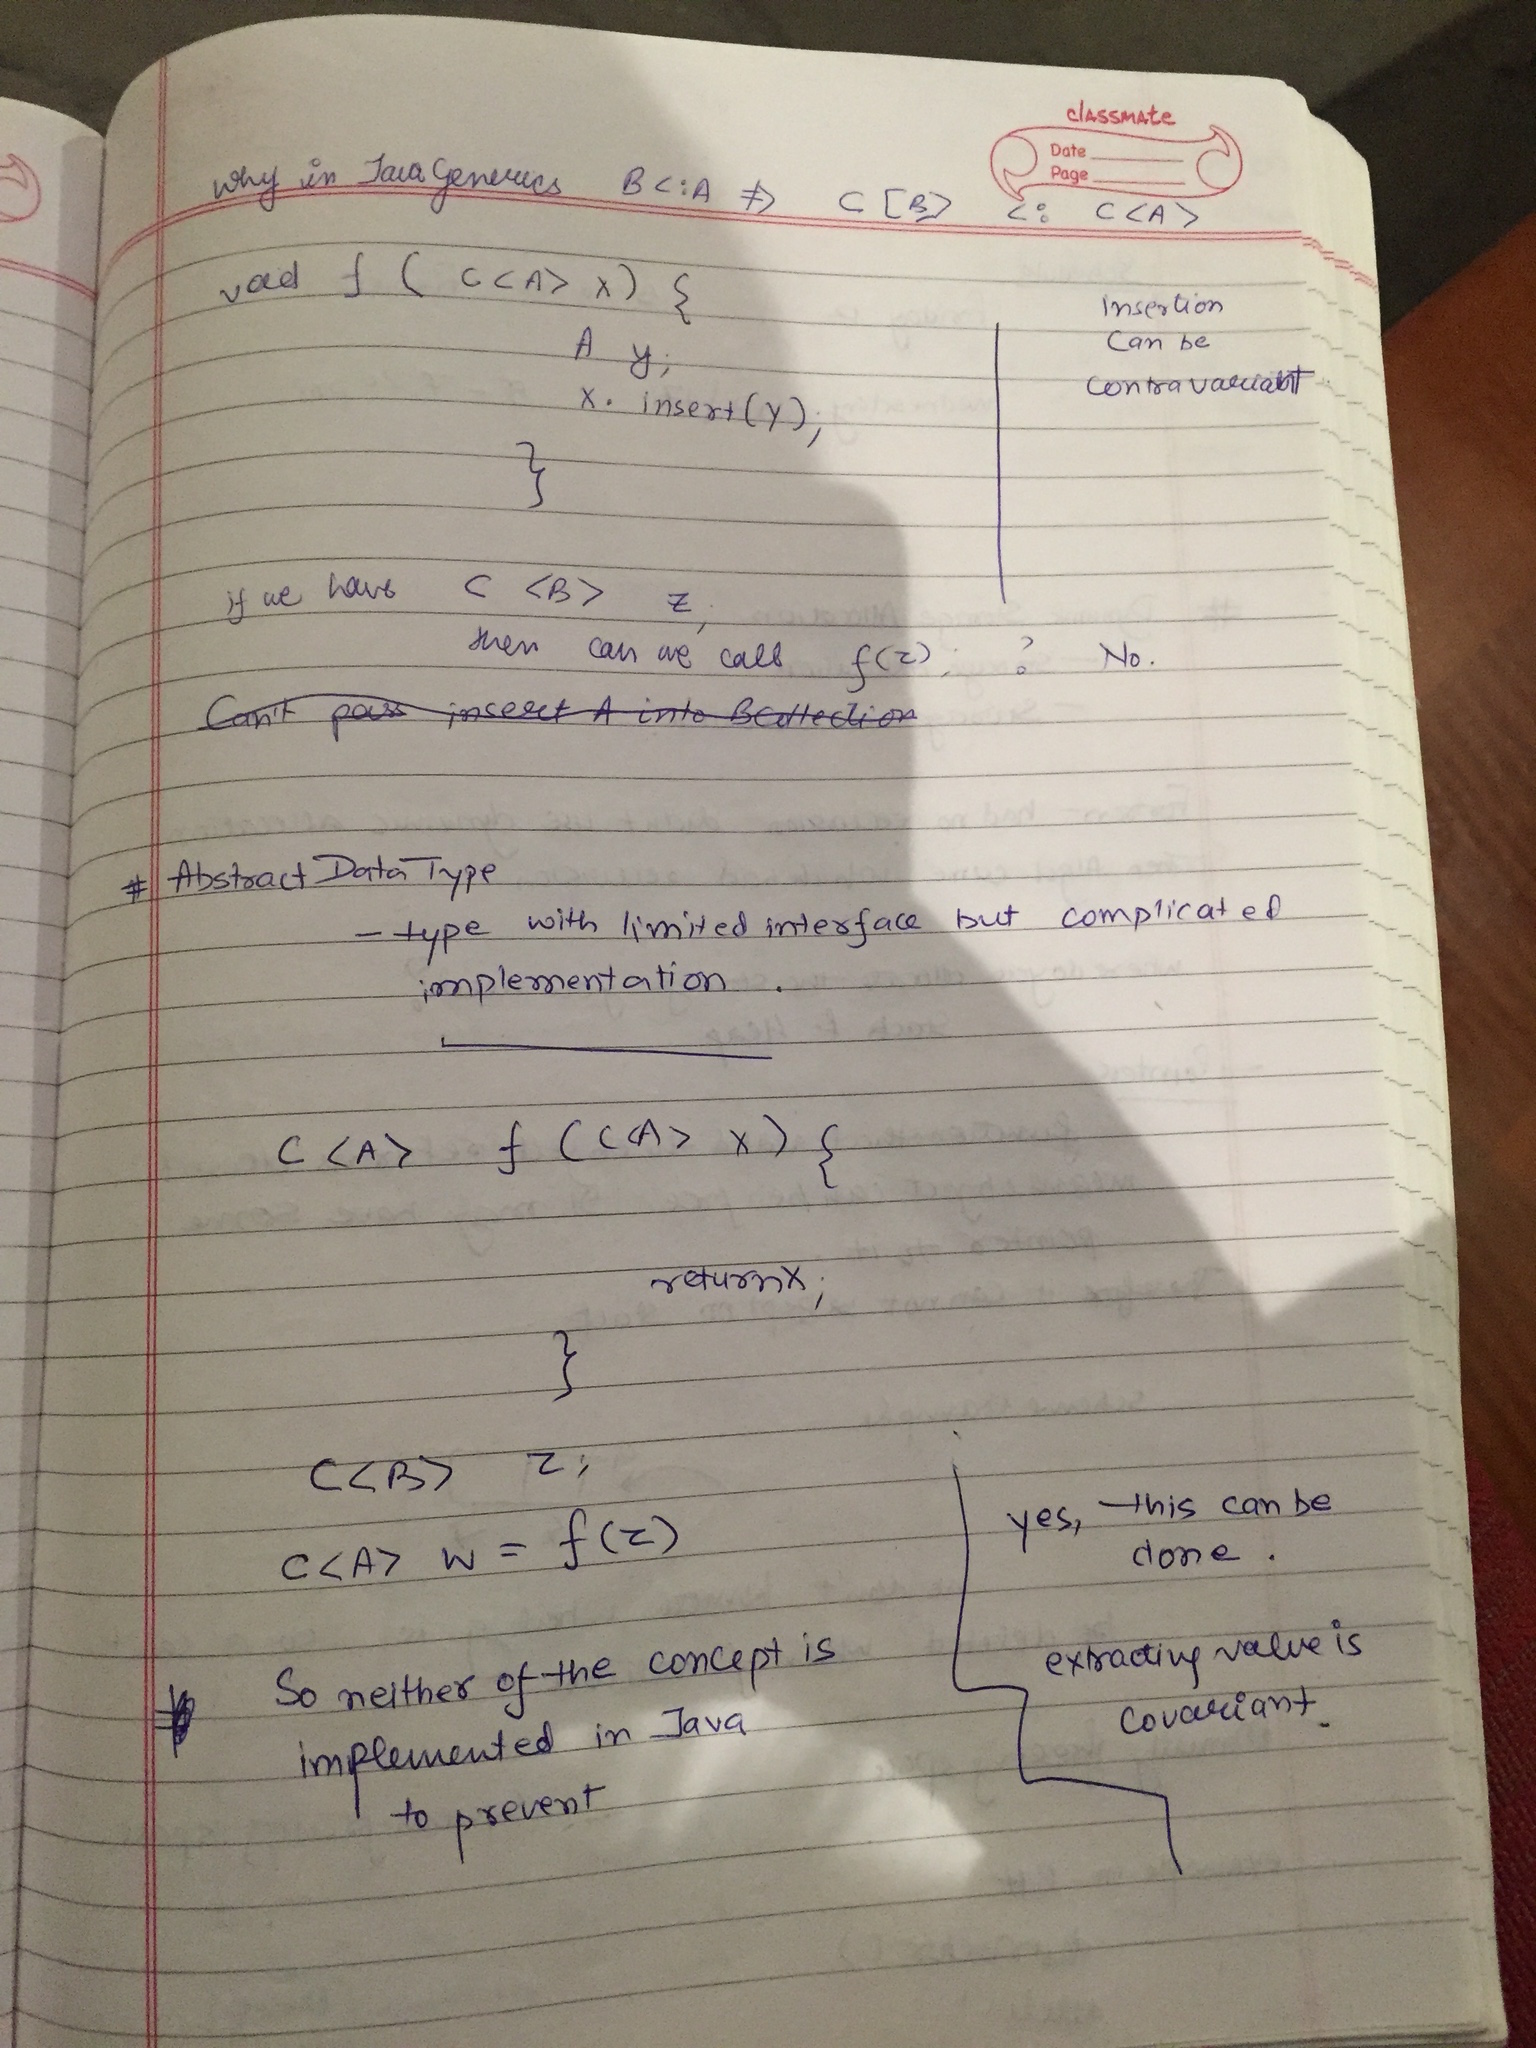 classmate
Date
Page
why in Java Generics B<:A ⇏ C[B> <: C<A>
void f ( C<A> x) {
A y;
x. insert(y);
}
Insertion
Can be
contravariant
if we have C <B> z;
then can we call f(z); ? No.
Can't pass insert A into B Collection
# Abstract Data Type
- type with limited interface but complicated
implementation .
C<A> f (C<A> x) {
return x;
}
C<B> z;
C<A> w = f(z)
yes, this can be
done .
extracting value is
covariant.
So neither of the concept is
implemented in Java
to prevent